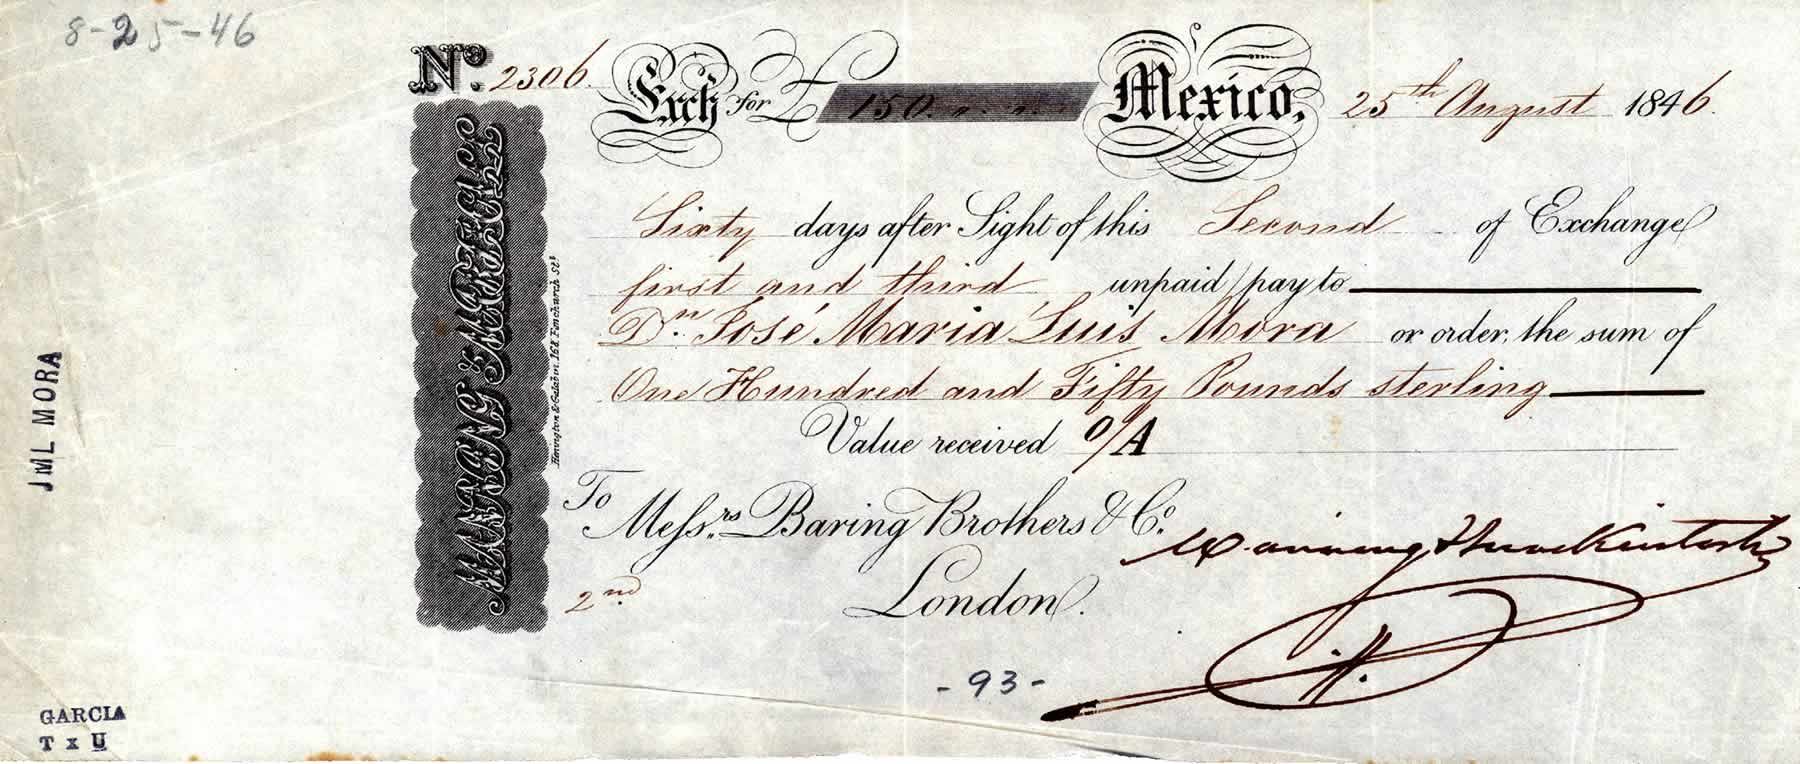 8-25-46
No. 2306. Exch for £ 150. „ „ Mexico, 25th August 1846.
MANNING & MARSHALL
Sixty days after Sight of this Second of Exchange
first and third unpaid pay to
Dn. José Maria Luis Mora or order, the sum of
One Hundred and Fifty Pounds sterling
Value received o/A
To
Messrs. Baring Brothers & Co.
London.
Manning & Mackintosh
2nd
-93-
JML MORA
GARCIA
T x U